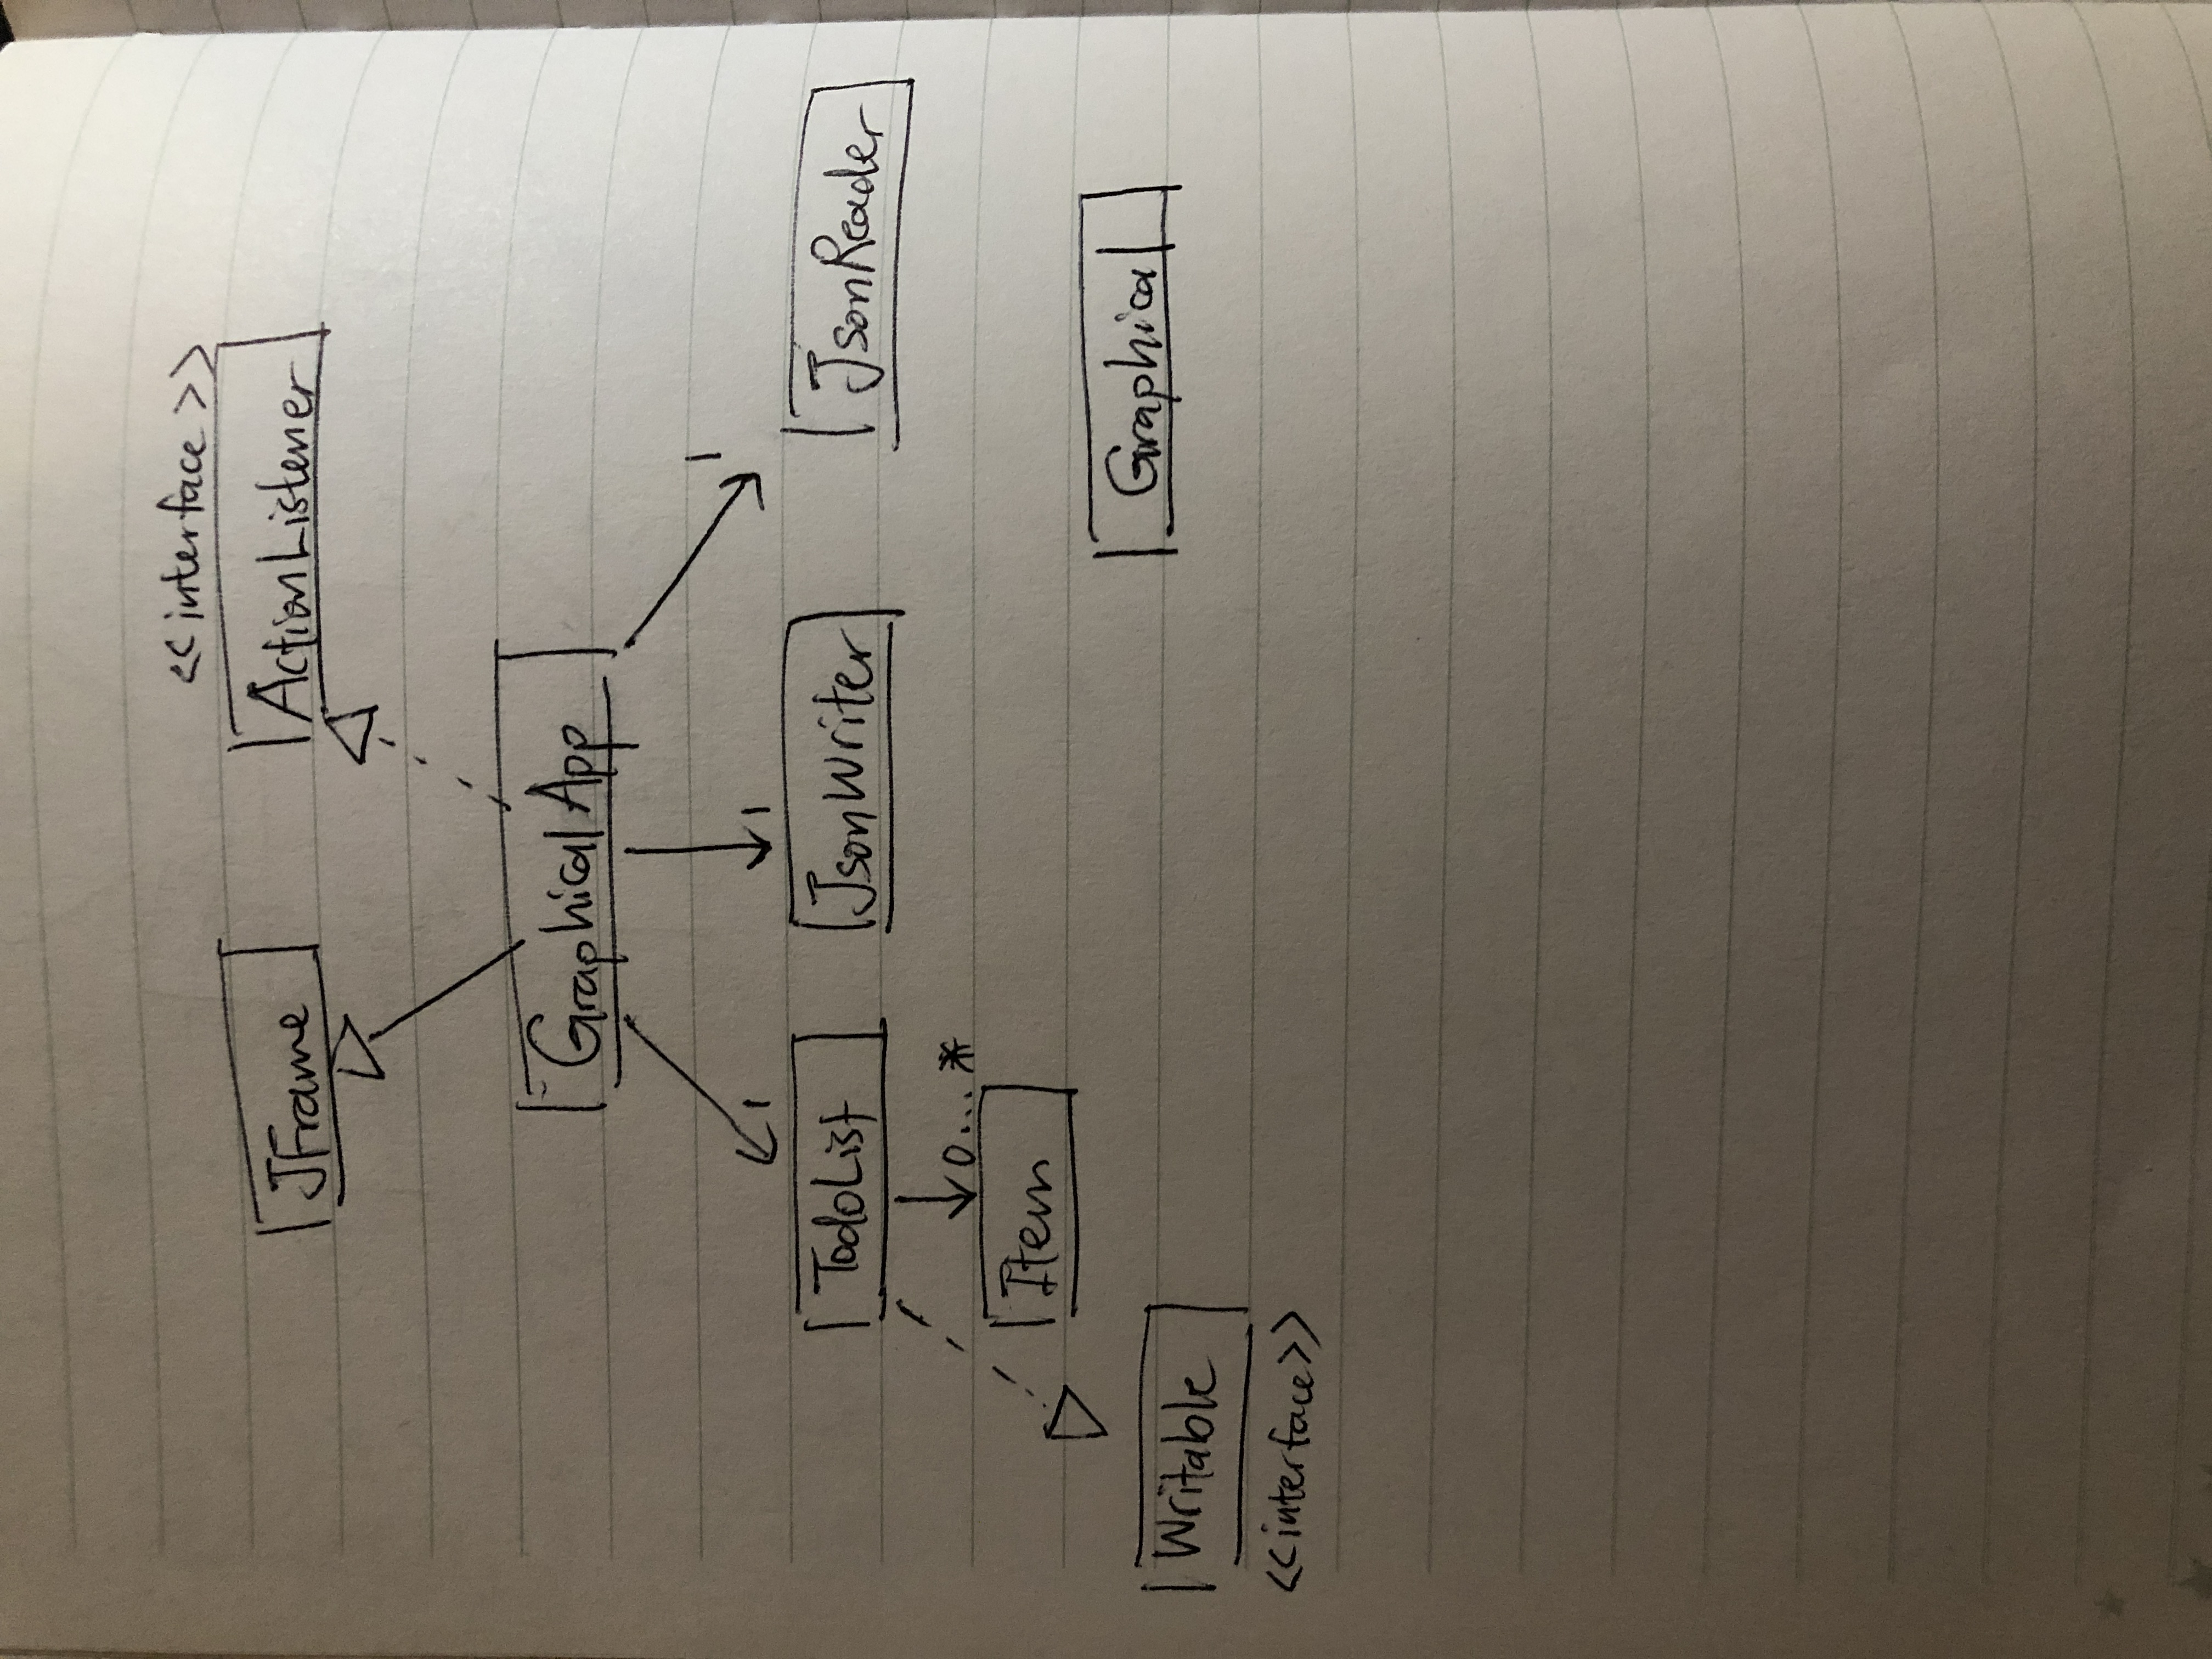 <<interface>>
JFrame
ActionListener
GraphicalApp
1
1
1
TodoList
JsonWriter
JsonReader
0...*
Item
Graphical
Writable
<<interface>>